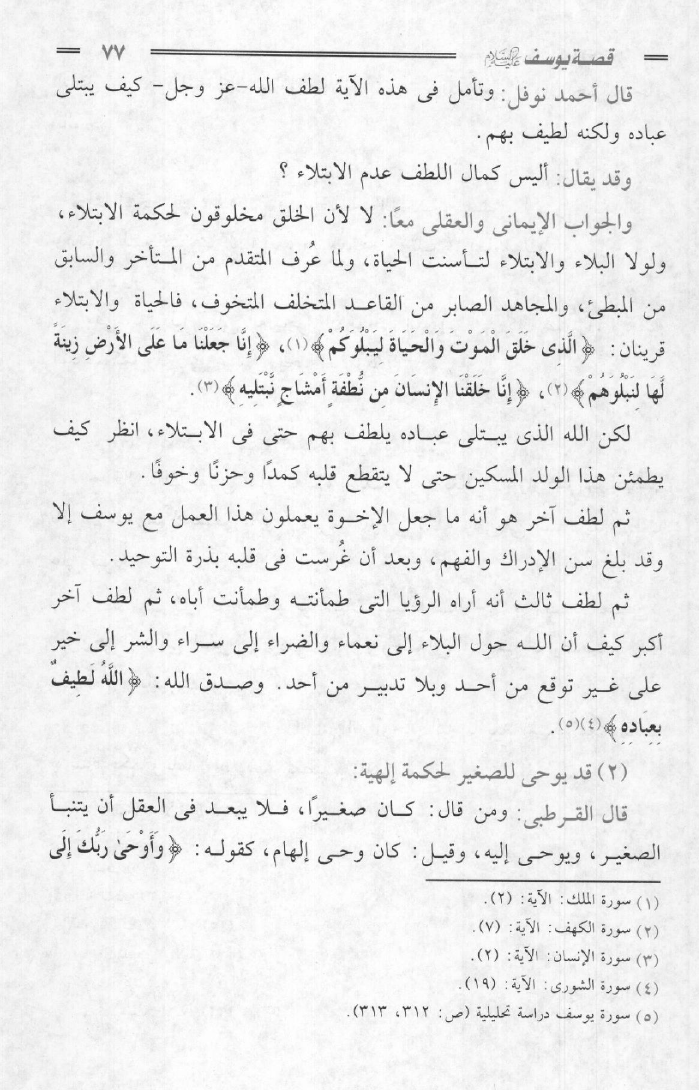 قصة يوسف عليه السلام ٧٧
قال أحمد نوفل: وتأمل فى هذه الآية لطف الله-عز وجل- كيف يبتلى
عباده ولكنه لطيف بهم.
وقد يقال: أليس كمال اللطف عدم الابتلاء ؟
والجواب الإيمانى والعقلى معًا: لا لأن الخلق مخلوقون لحكمة الابتلاء،
ولولا البلاء والابتلاء لتأسنت الحياة، ولما عُرف المتقدم من المتأخر والسابق
من المبطئ، والمجاهد الصابر من القاعد المتخلف المتخوف، فالحياة والابتلاء
قرينان: ﴿ الَّذِى خَلَقَ الْمَوْتَ وَالْحَيَاةَ لِيَبْلُوَكُمْ ﴾(١)، ﴿ إِنَّا جَعَلْنَا مَا عَلَى الأَرْضِ زِينَةً
لَّهَا لِنَبْلُوَهُمْ ﴾(٢)، ﴿ إِنَّا خَلَقْنَا الإِنسَانَ مِن نُّطْفَةٍ أَمْشَاجٍ نَّبْتَلِيهِ ﴾(٣).
لكن الله الذى يبتلى عباده يلطف بهم حتى فى الابتلاء، انظر كيف
يطمئن هذا الولد المسكين حتى لا يتقطع قلبه كمدًا وحزنًا وخوفًا.
ثم لطف آخر هو أنه ما جعل الإخوة يعملون هذا العمل مع يوسف إلا
وقد بلغ سن الإدراك والفهم، وبعد أن غُرست فى قلبه بذرة التوحيد.
ثم لطف ثالث أنه أراه الرؤيا التى طمأنته وطمأنت أباه، ثم لطف آخر
أكبر كيف أن الله حول البلاء إلى نعماء والضراء إلى سراء والشر إلى خير
على غير توقع من أحد وبلا تدبير من أحد. وصدق الله: ﴿ اللَّهُ لَطِيفٌ
بِعِبَادِهِ ﴾(٤)(٥).
(٢) قد يوحى للصغير لحكمة إلهية:
قال القرطبى: ومن قال: كان صغيرًا، فلا يبعد فى العقل أن يتنبأ
الصغير، ويوحى إليه، وقيل: كان وحى إلهام، كقوله: ﴿ وَأَوْحَىٰ رَبُّكَ إِلَى
(١) سورة الملك: الآية: (٢).
(٢) سورة الكهف: الآية: (٧).
(٣) سورة الإنسان: الآية: (٢).
(٤) سورة الشورى: الآية: (١٩).
(٥) سورة يوسف دراسة تحليلية (ص: ٣١٢، ٣١٣).